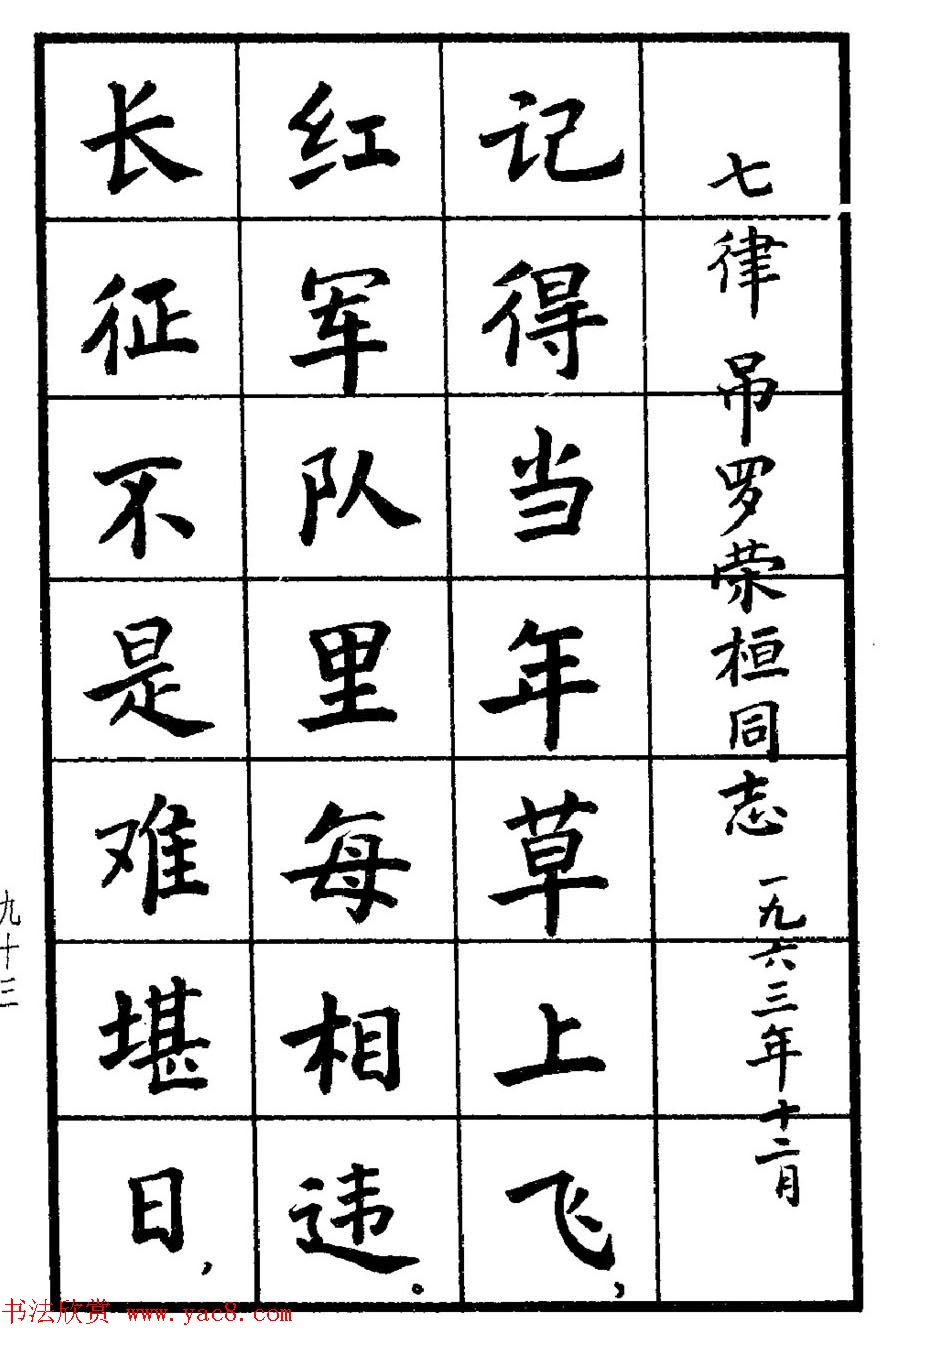 七律 吊罗荣桓同志 一九六三年十二月
记得当年草上飞，
红军队里每相违。
长征不是难堪日，
九十三
书法欣赏 www.yac8.com